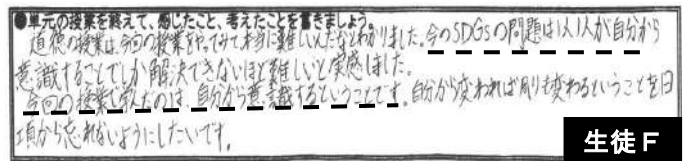 ●単元の授業を終えて、感じたこと、考えたことを書きましょう。
道徳の授業は、今回の授業をやってみて本当に難しいんだなとわかりました。今のSDGsの問題は1人1人が自分から
意識することでしか解決できないほど難しいと実感しました。
今回の授業で学んだのは、自分から意識するということです。自分から変われば周りも変わるということを日
頃から忘れないようにしたいです。
生徒F